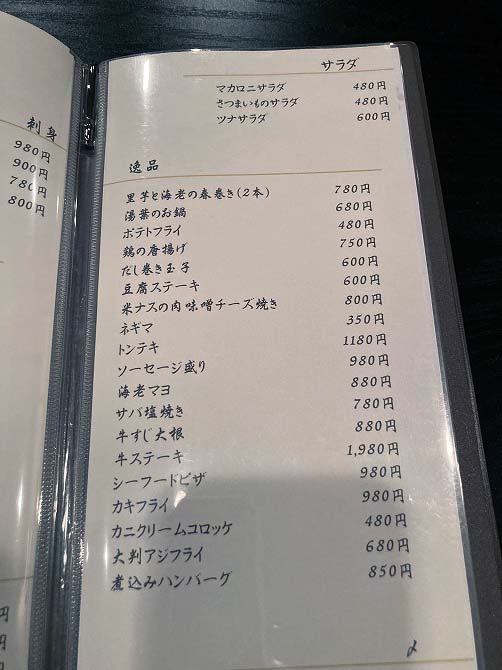 刺身
980円
900円
780円
800円
サラダ
マカロニサラダ 480円
さつまいものサラダ 480円
ツナサラダ 600円
逸品
里芋と海老の春巻き(2本) 780円
湯葉のお鍋 680円
ポテトフライ 480円
鶏の唐揚げ 750円
だし巻き玉子 600円
豆腐ステーキ 600円
米ナスの肉味噌チーズ焼き 800円
ネギマ 350円
トンテキ 1180円
ソーセージ盛り 980円
海老マヨ 880円
サバ塩焼き 780円
牛すじ大根 880円
牛ステーキ 1,980円
シーフードピザ 980円
カキフライ 980円
カニクリームコロッケ 480円
大判アジフライ 680円
煮込みハンバーグ 850円
円
円
円